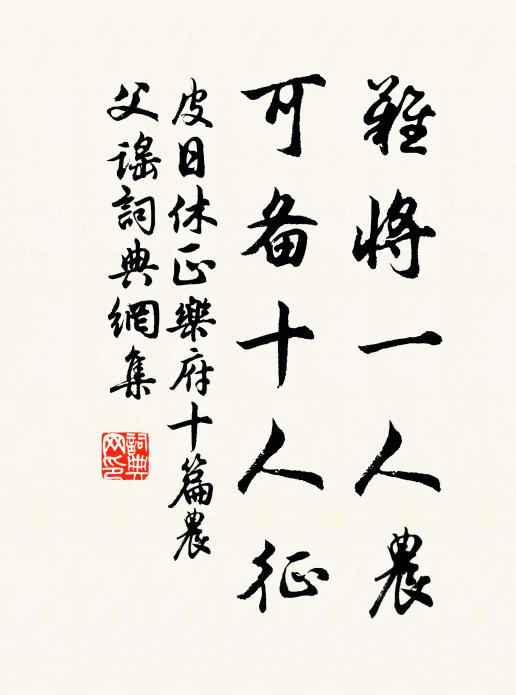 難將一人農
可备十人征
皮日休正樂府十篇農
父谣詞典網集
詞典网印